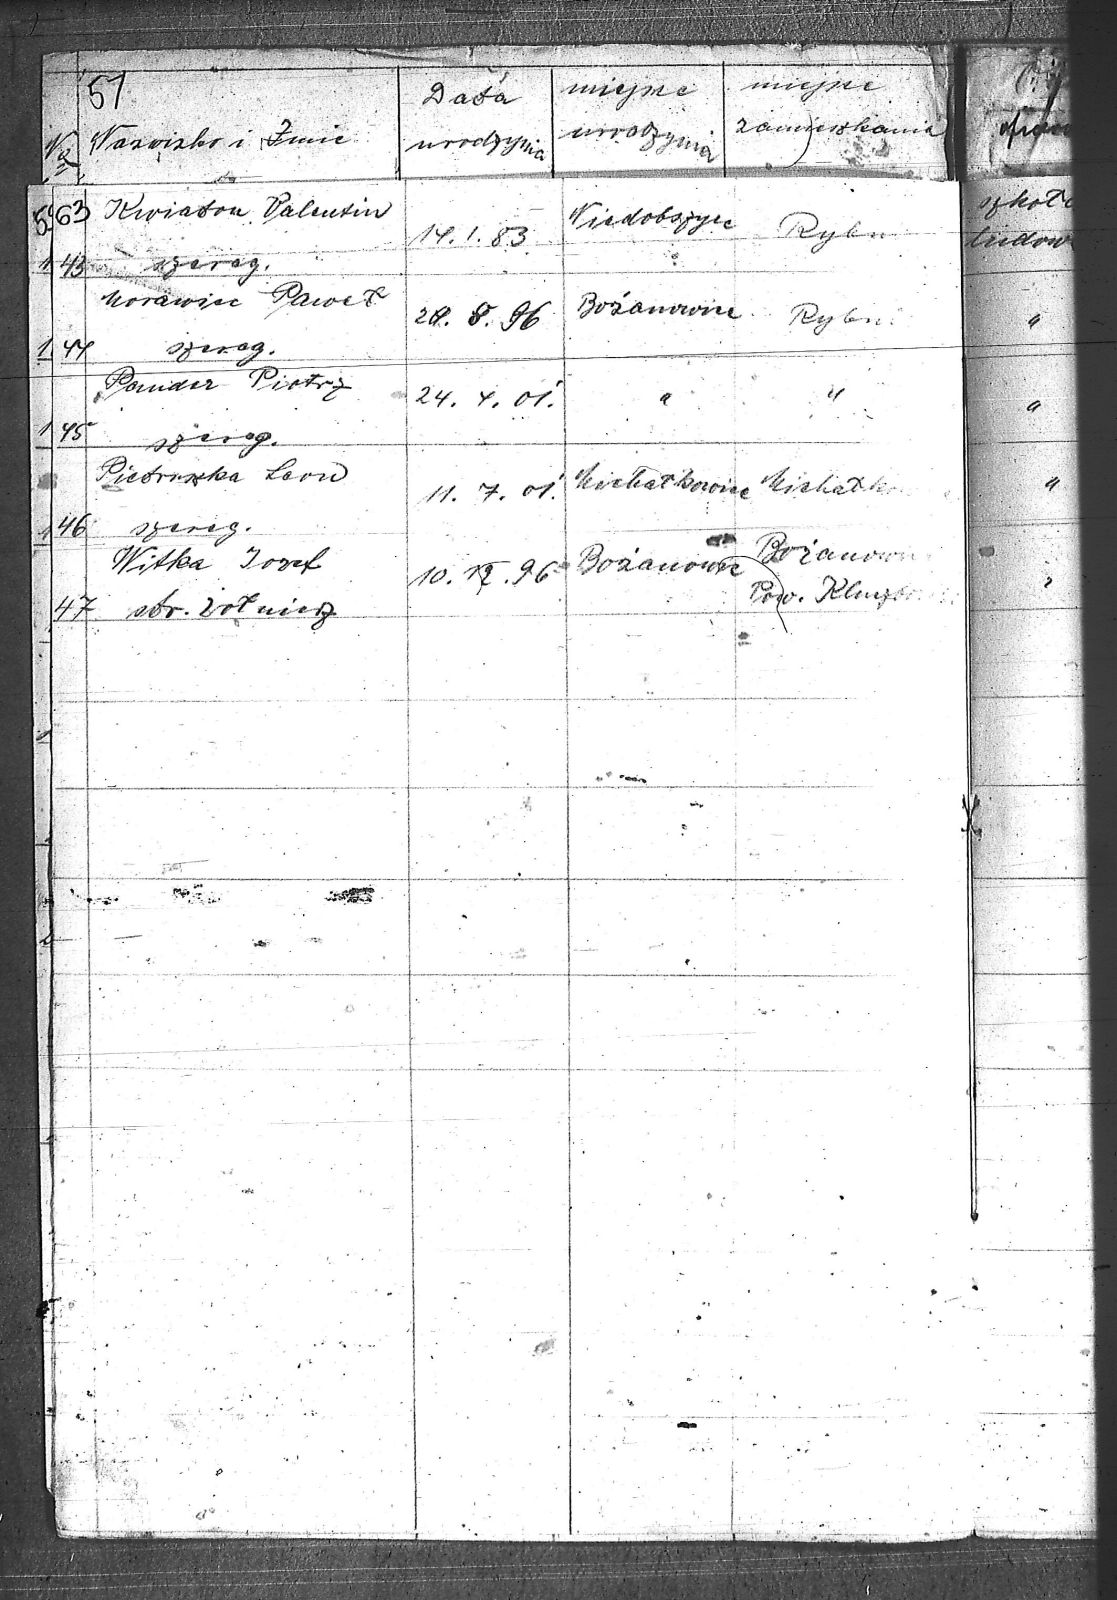 51
No Nazwisko i Imie
Data urodzynia
miejsce urodzynia
miejsce zamieszkania
63 Kwiaton Valentin 14. 1. 83 Niedobszyce Rybn
szkoł
ludow
43 szereg.
Morawiec Paweł 28. 8. 96 Bożanowice Rybn "
44 szereg.
Pander Piotrz 24. 4. 01. " " "
45 szereg.
Pietruszka Leon 11. 7. 01. Michałkowice Michałko "
46 szereg.
Witka Jozef 10. 12. 96 Bożanowice Bożanowi "
Pow. Kluczbor
47 str. żołnierz